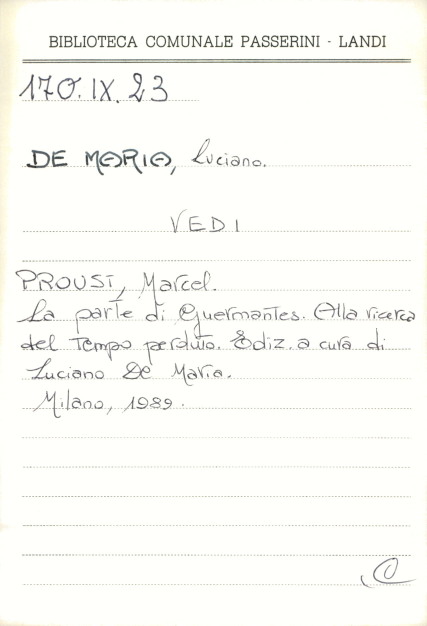 BIBLIOTECA COMUNALE PASSERINI - LANDI
170.IX.23
DE MARIA, Luciano.
VEDI
PROUST, Marcel.
La parte di Guermantes. Alla ricerca
del Tempo perduto. Ediz. a cura di
Luciano De Maria.
Milano, 1989.